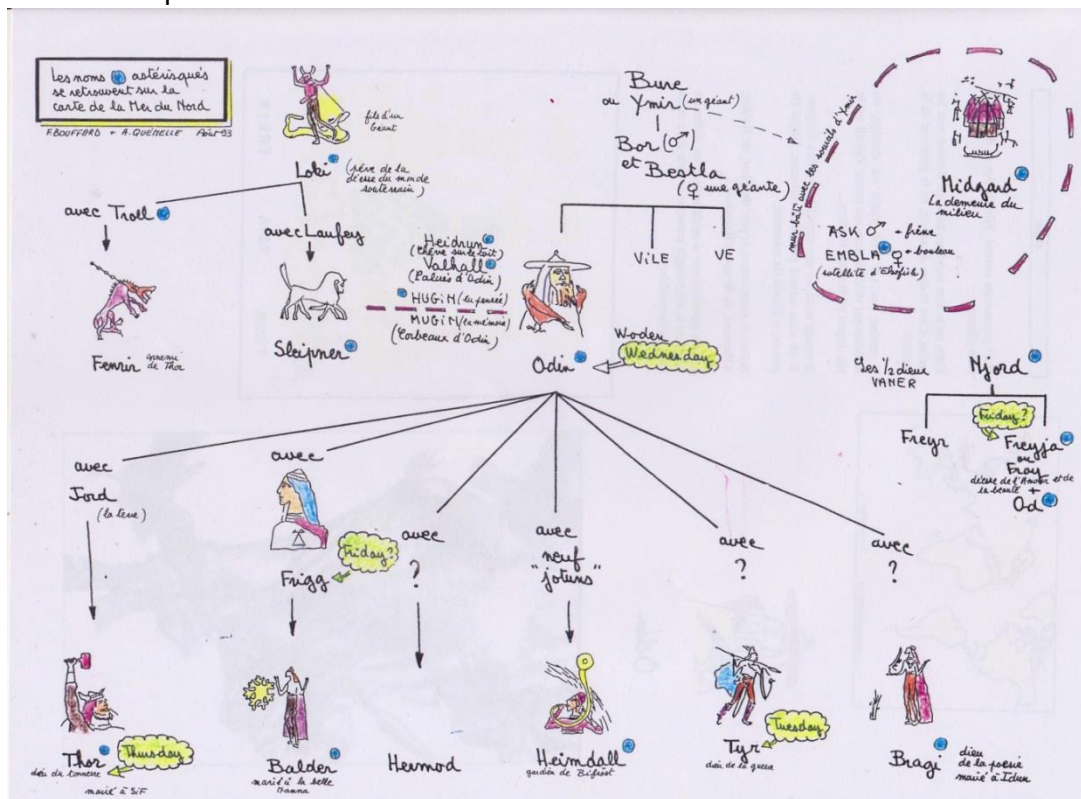 Les noms astérisqués
se retrouvent sur la
carte de la Mer du Nord
F.BOUFFARD + A.QUEMELLE
fils d'un
Géant
Loki
(père de la
déesse du monde
souterrain)
avec Troll
Fenrir ennemi
de Thor
avec Laufey
Sleipner
Heidrun
(chèvre sur le toit)
Valhall
(Palais d'Odin)
HUGIN (la pensée)
MUGIN (la mémoire)
(Corbeaux d'Odin)
Bure
ou Ymir (un géant)
Bor (♂)
et Bestla
(♀ une géante)
ViLE
VE
Woden
Wednesday
Odin
mur bâti avec les sourcils d'Ymir
Midgard
La demeure du
milieu
ASK ♂ = frêne
EMBLA ♀ = bouleau
(satellite d'Ekofisk)
Les 1/2 dieux
VANER
Njord
Freyr
Friday?
Freyja
ou
Froy
déesse de l'Amour et de
la beauté +
Od
avec
Jord
(la terre)
avec
Frigg
Friday?
avec
?
avec
neuf
"jotuns"
avec
?
avec
?
Thor
Thursday
dieu du tonnerre
marié à SiF
Balder
marié à la belle
Nanna
Hermod
Heimdall
gardien de Bifrost
Tyr
Tuesday
dieu de la guerre
Bragi
dieu
de la poésie
marié à Idun